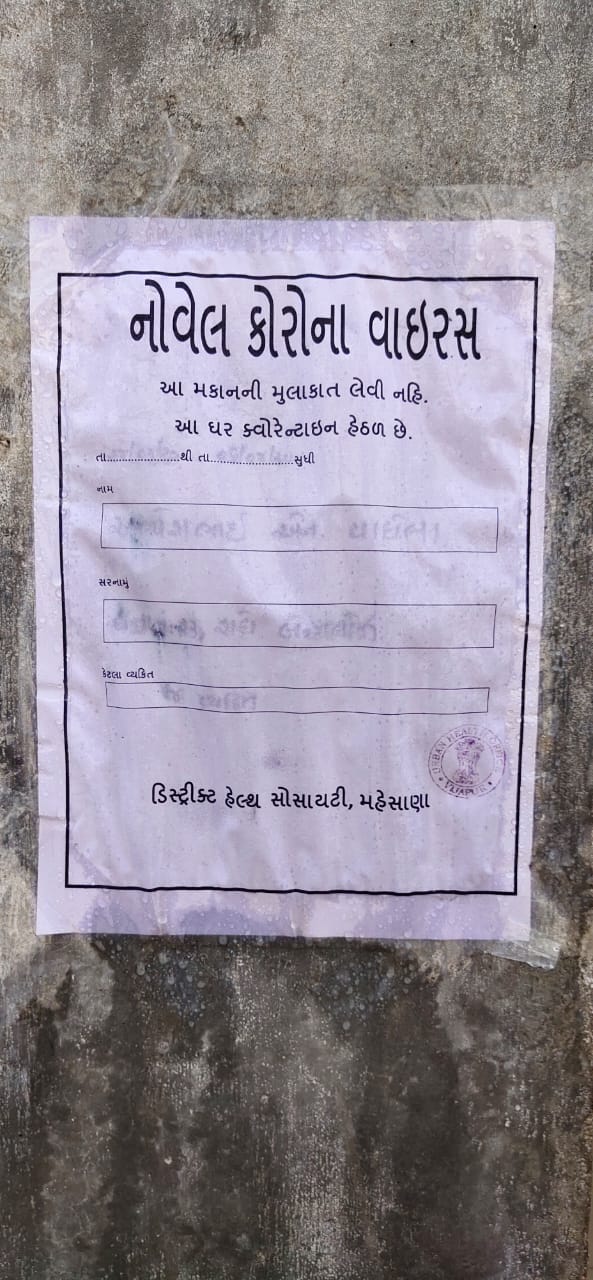 નોવેલ કોરોના વાઇરસ
આ મકાનની મુલાકાત લેવી નહિ.
આ ઘર ક્વોરેન્ટાઇન હેઠળ છે.
તા......................થી તા.........................સુધી
નામ
સરનામું
કેટલા વ્યકિત
URBAN HEALTH
VIJAPUR
ડિસ્ટ્રીક્ટ હેલ્થ સોસાયટી, મહેસાણા